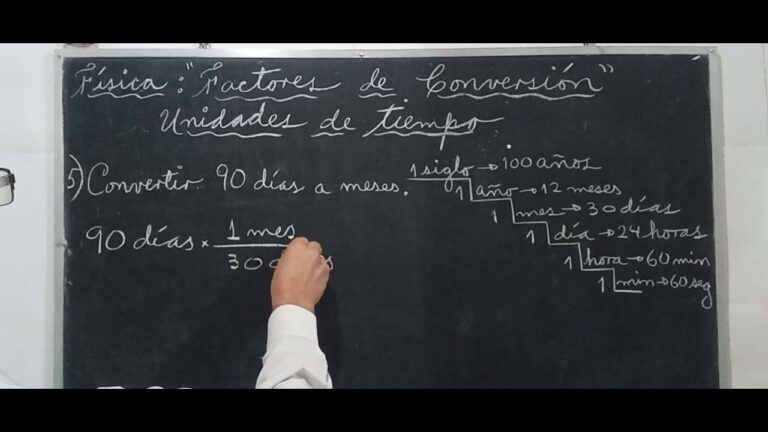 Física: "Factores de Conversión"
Unidades de tiempo
5) Convertir: 90 días a meses.
90 días × 1 mes
30
1 siglo → 100 años
1 año → 12 meses
1 mes → 30 días
1 día → 24 horas
1 hora → 60 min
1 min → 60 seg